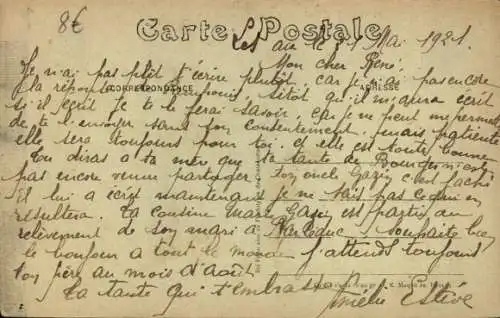 8€
Carte Postale
Les Mai 1921.
Mon cher René
Je n'ai pas plut t'écrire plutôt, car je n'ai pas encore
CORRESPONDANCE
ADRESSE
la réponse sitôt qu'il m'aura écrit
s'il écrit je te le ferai savoir, car je ne peut me permettre
de te l'envoyer sans son consentement, mais patiente
elle sera toujours pour toi. et elle est toute bonne
Tu diras a ta mère que ta tante de n'est
pas encore venue partager ton oncle Gazin c'est faché
il lui a écrit maintenant je ne sais pas ce qui en
resultera. Ta cousine Marie Gazin est partie au
relèvement de son mari a Bar le Duc souhaite bien
le bonjour a tout le monde j'attends toujours
ton père au mois d'Août.
Ta tante qui t'embrasse
Amélie Estève